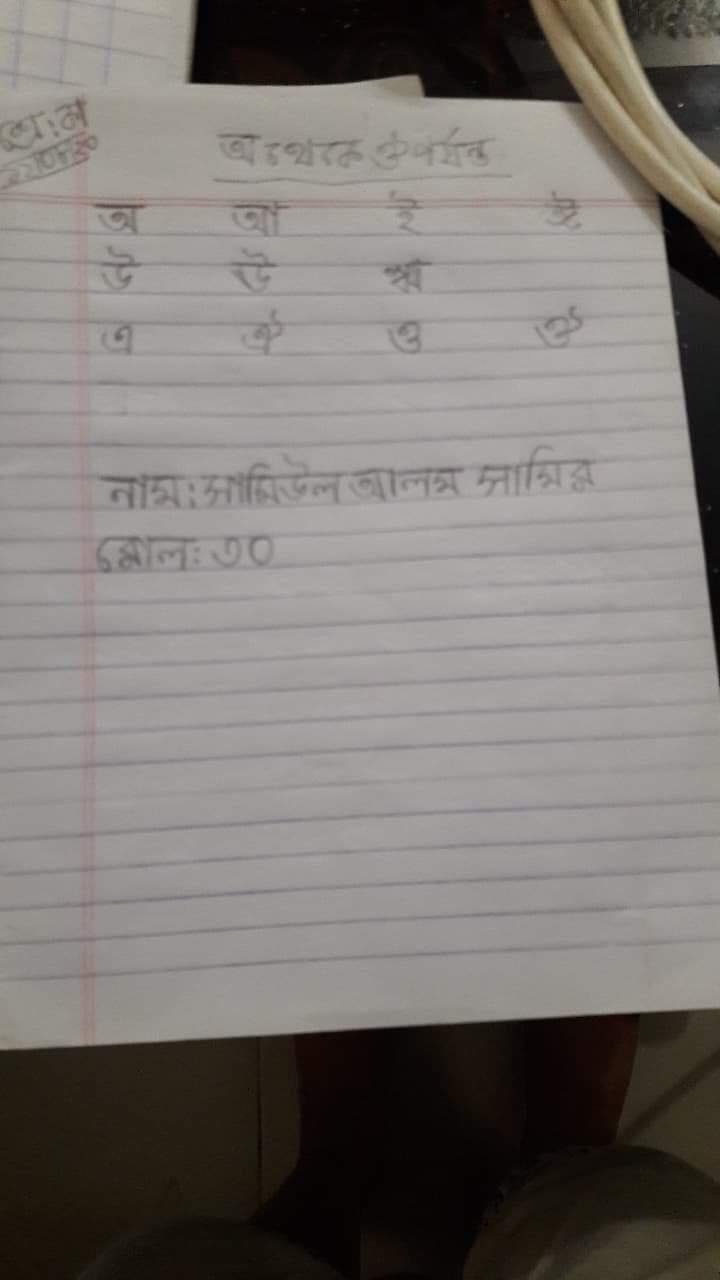 শ্রে:ন
অ থেকে ঔ পর্যন্ত
অ আ ই ঈ
উ ঊ ঋ
এ ঐ ও ঔ
নাম: সামিউল আলম সামির
রোল: ৩০